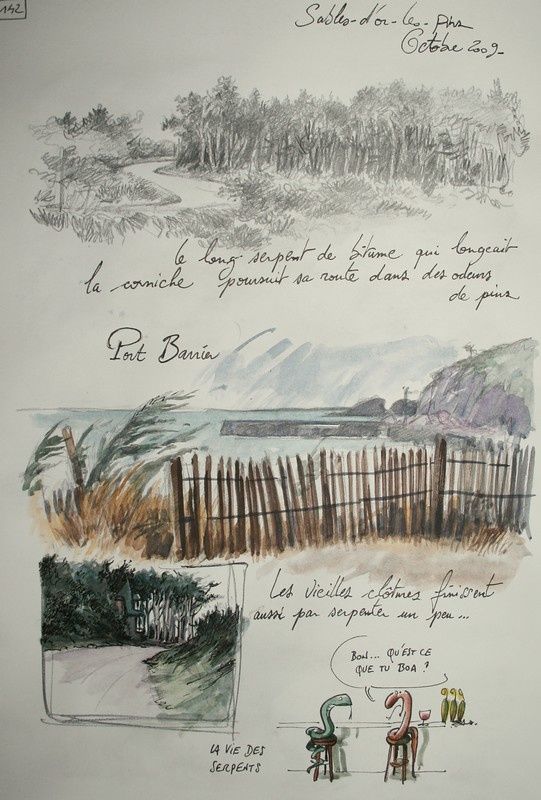 142
Sables-d'or-les-pins
Octobre 2009-
le long serpent de bitume qui longeait
la corniche poursuit sa route dans des odeurs
de pins
Port Barrier
Les vieilles clôtures finissent
aussi par serpenter un peu...
BON... QU'EST CE
QUE TU BOA ?
LA VIE DES
SERPENTS